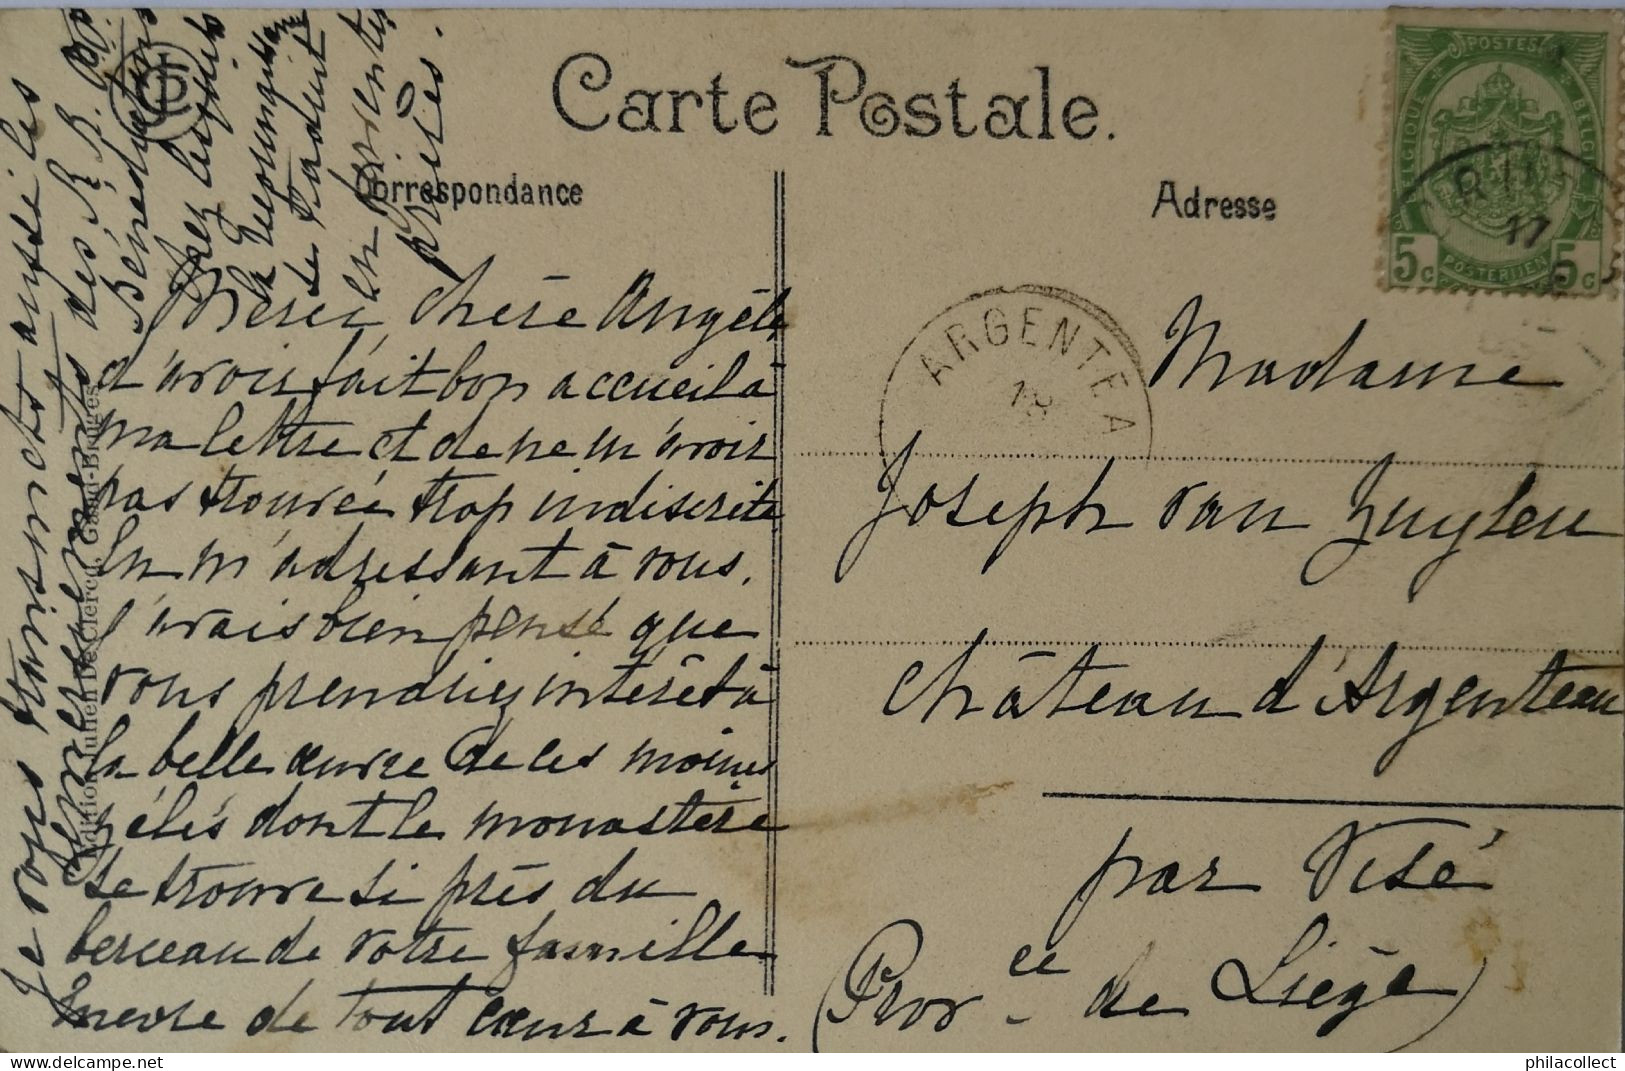 Carte Postale.
Correspondance
Adresse
POSTES
BELGIQUE
BELGIË
5c
5c
POSTERIJEN
17
ARGENTEA
18
Merci, chère Angèle
d'avoir fait bon accueil à
ma lettre et de ne m'avoir
pas trouvée trop indiscrète
en m'adressant à vous.
J'avais bien pensé que
vous prendriez intérêt à
la belle œuvre de ces moines
zélés dont le monastère
se trouve si près du
berceau de votre famille
merre de tout cœur à vous.
Je vous transmets aussi les
remerciements des R. R. P.
Bénédictins
chez lesquels
la reconnaissance
se traduit
en ferventes
prières.
Edition Julien De Clercq, Gand-Bruges
Madame
Joseph van Zuylen
Château d'Argenteau
par Visé
(Provce de Liège)
philacollect